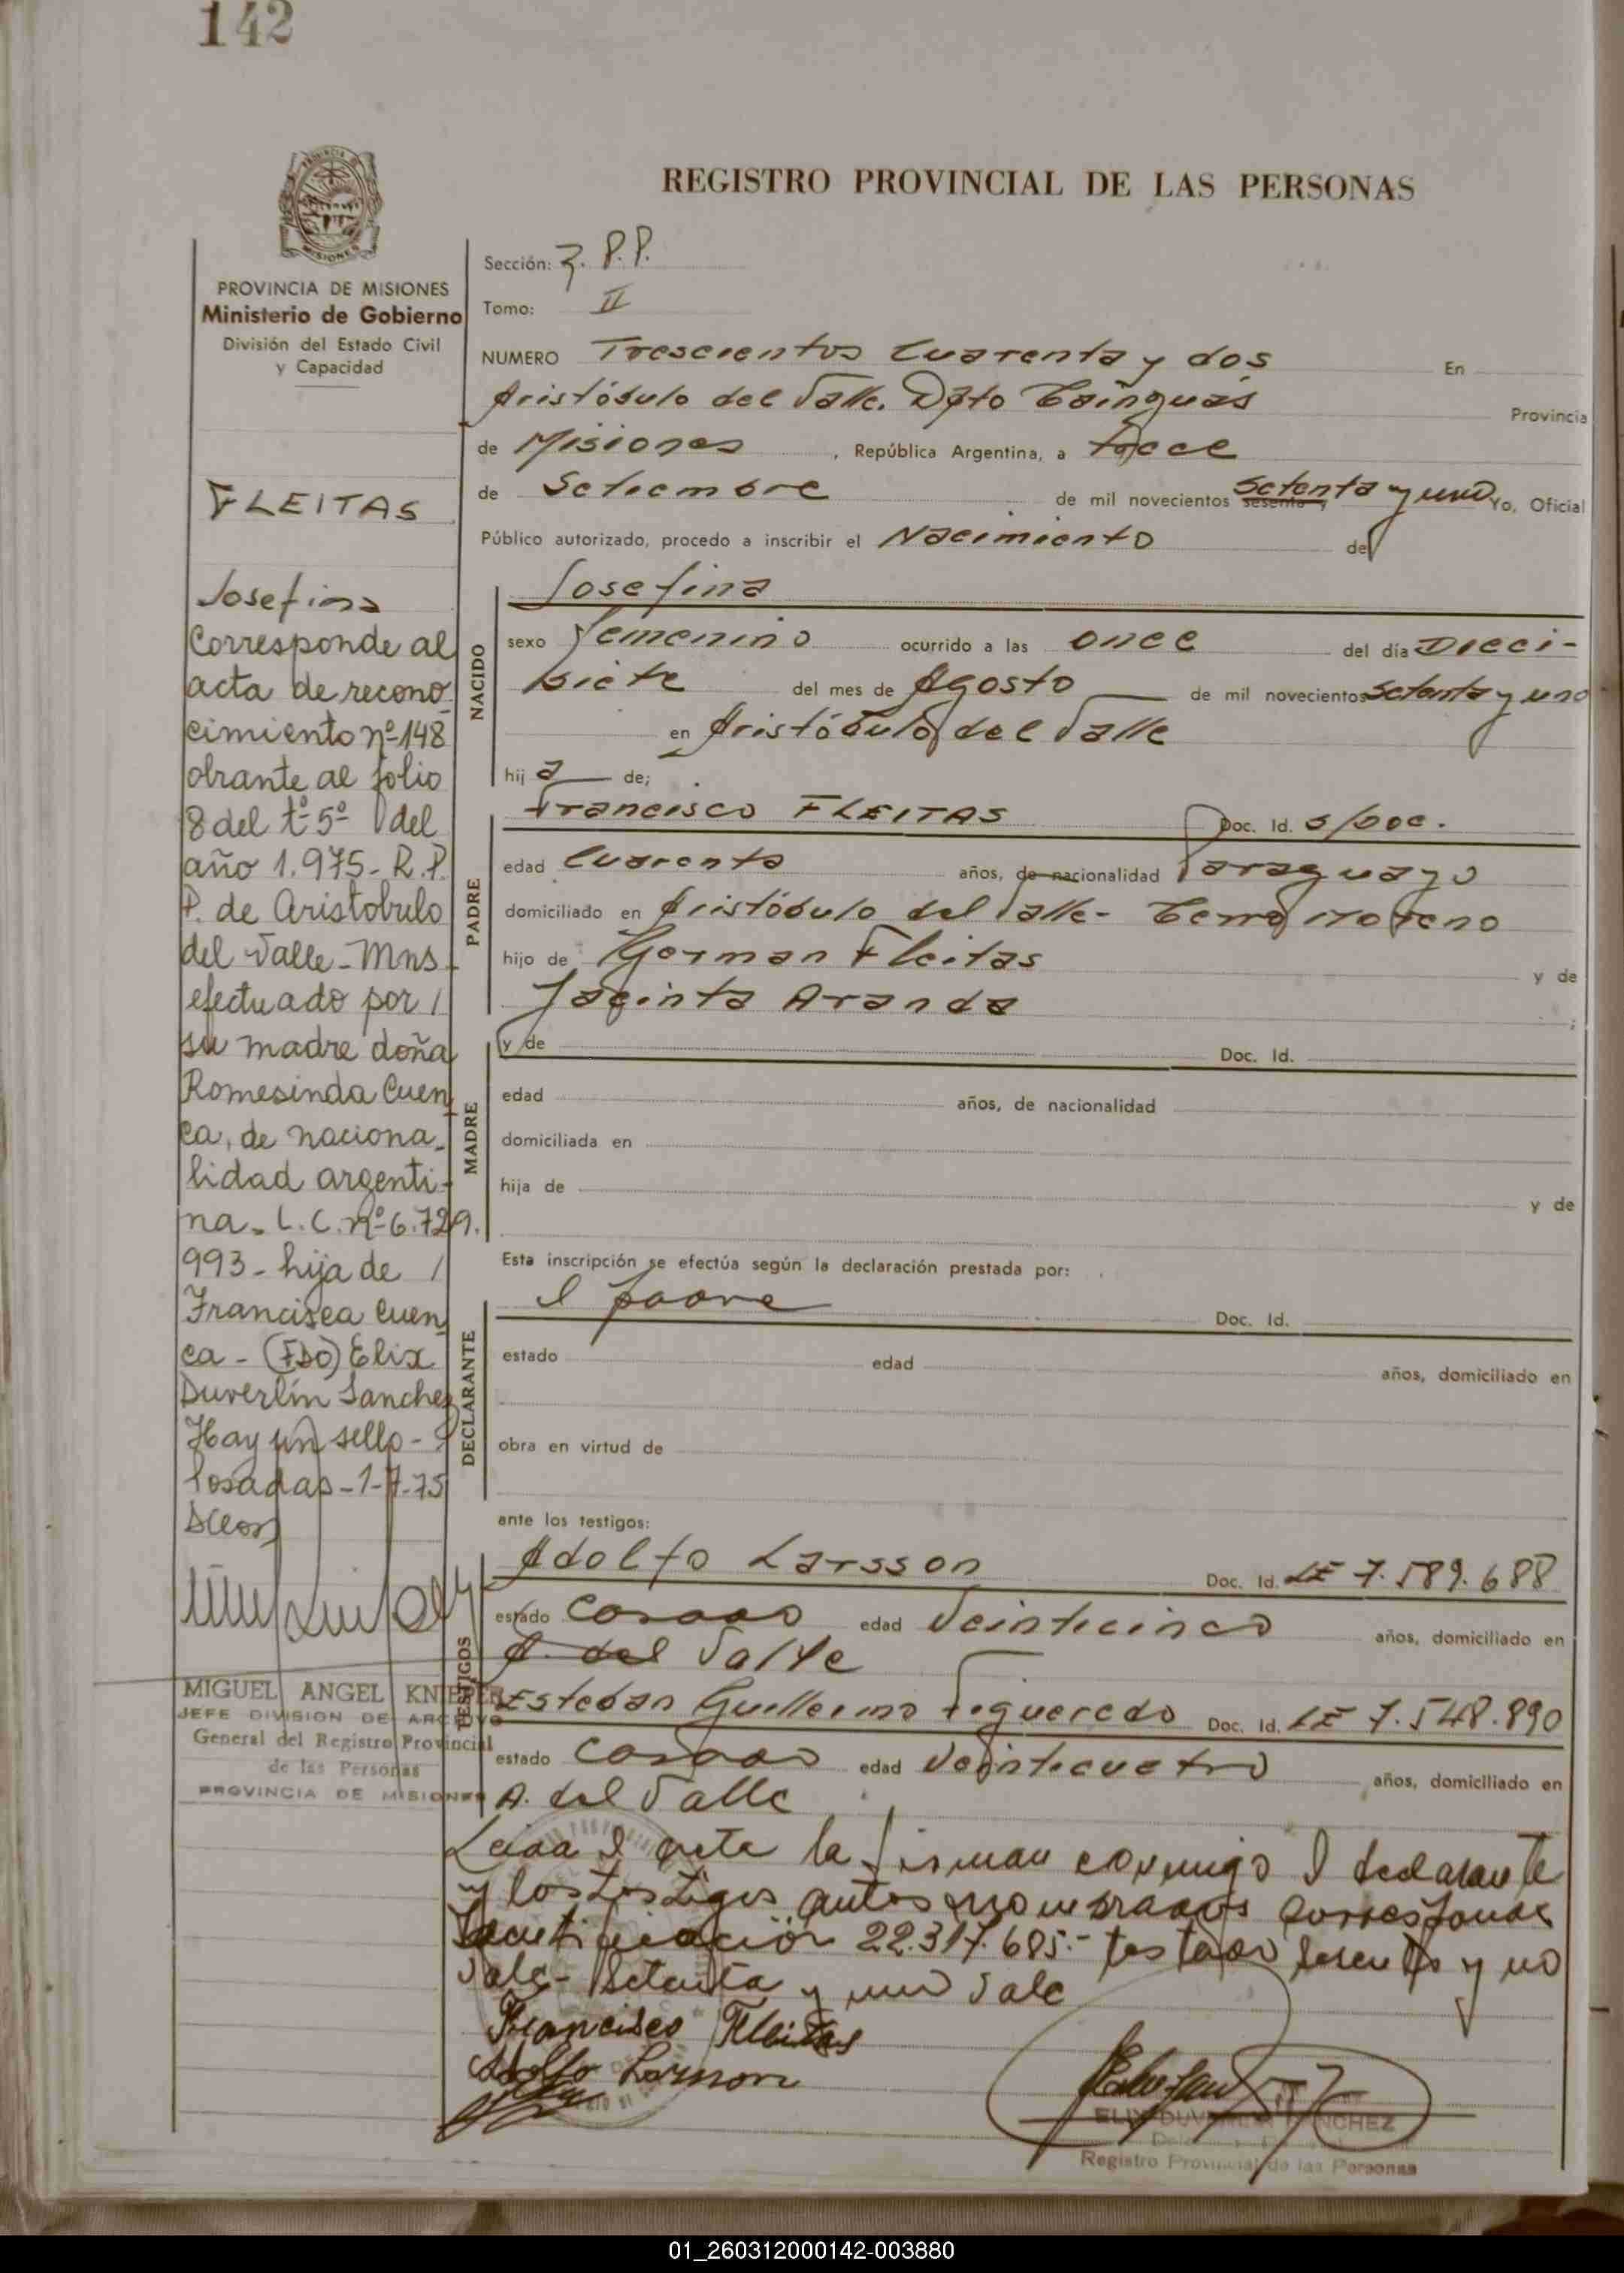 142
REGISTRO PROVINCIAL DE LAS PERSONAS
PROVINCIA DE MISIONES
Ministerio de Gobierno
División del Estado Civil
y Capacidad
FLEITAS
Josefina
Corresponde al
acta de recono-
cimiento nº 148
obrante al folio
8 del tº 5º del
año 1.975- R.P.
P. de Aristobulo
del Valle - Mns
efectuado por /
su madre doña
Romesinda Cuen
ca, de naciona-
lidad argenti-
na. L.C. nº 6.729.
993 - hija de /
Francisca Cuen
ca - (FDO) Elix
Duverlín Sanchez
Hay un sello -
Posadas - 1-7-75
MIGUEL ANGEL KNIEPER
JEFE DIVISION DE ARCHIVO
General del Registro Provincial
de las Personas
PROVINCIA DE MISIONES
Sección: 7. P.P.
Tomo: II
NUMERO Trescientos Cuarenta y dos En
Aristóbulo del Valle. Dpto Cainguás Provincia
de Misiones, República Argentina, a trece
de Setiembre de mil novecientos sesenta y Setenta y uno Yo, Oficial
Público autorizado, procedo a inscribir el Nacimiento de
NACIDO
Josefina
sexo Femenino ocurrido a las once del día Dieci-
siete del mes de Agosto de mil novecientos Setenta y uno
en Aristóbulo del Valle
hija de;
PADRE
Francisco FLEITAS Doc. Id. S/Doc.
edad Cuarenta años, de nacionalidad Paraguayo
domiciliado en Aristóbulo del Valle - Cerro Moreno
hijo de German Fleitas y de
Jacinta Aranda ;
MADRE
y de Doc. Id.
edad años, de nacionalidad
domiciliada en
hija de y de
Esta inscripción se efectúa según la declaración prestada por:
DECLARANTE
el padre Doc. Id.
estado edad años, domiciliado en
obra en virtud de
ante los testigos:
TESTIGOS
Adolfo Larsson Doc. Id. LE 7.589.688
estado Casado edad Veinticinco años, domiciliado en
A. del Valle
Esteban Guillermo Figueredo Doc. Id. LE 7.548.890
estado Casado edad Veinticuatro años, domiciliado en
A. del Valle
Leida el acta la firman conmigo el declarante
y los testigos antes nombrados corresponde
identificación 22.317.685.- testado sesenta y no
vale - Setenta y uno Vale
Francisco Fleitas
Adolfo Larsson
ELIX DUVERLIN SANCHEZ
Registro Provincial de las Personas
01_260312000142-003880